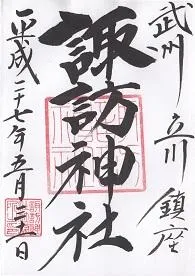 武州立川鎮座
諏訪神社
平成二十七年五月三十一日